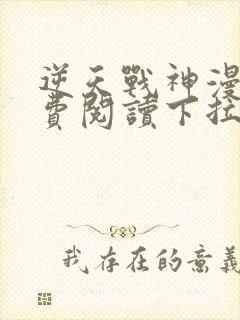 逆天戰神漫
費閱讀下拉
我存在的意義